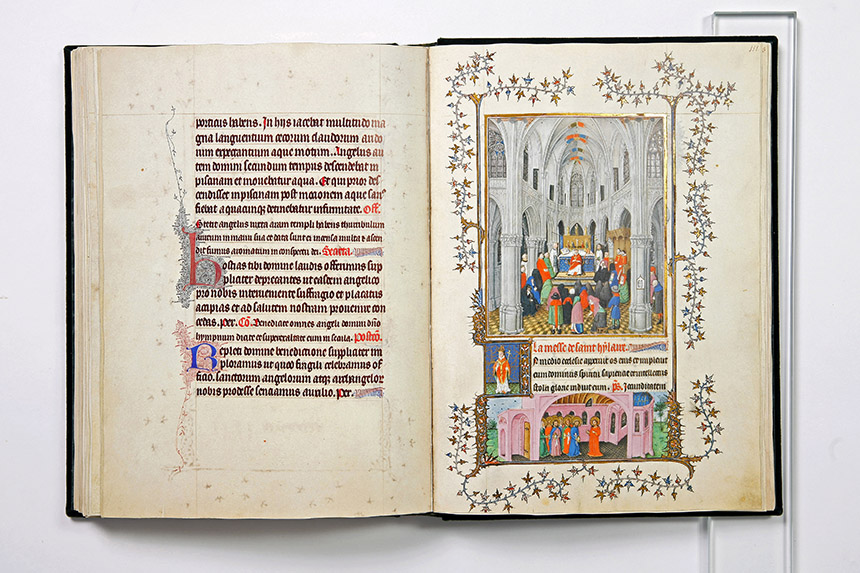 porticus habens. In hijs iacebat multitudo ma
gna languentium cecorum claudorum arido
rum expectantium aque motum. Angelus au
tem domini secundum tempus descendebat in
piscinam et mouebatur aqua. Et qui prior des
cendisset in piscinam post mocionem aque san
fiebat a quacunq detinebatur infirmitate. Off.
Stetit angelus iuxta aram templi habens thuribulum
aureum in manu sua et data sunt ei incensa multa et ascen
dit fumus aromatum in conspectu dei. Secreta.
Hostias tibi domine laudis offerimus sup
pliciter deprecantes ut easdem angelico
pro nobis interueniente suffragio et placatus
accipias et ad salutem nostram prouenire con
cedas. Per. Co. Benedicite omnes angeli domini dno
hympnum dicite et superexaltate eum in secula. Postco.
Repleti domine benedictione suppliciter im
ploramus ut quod fragili celebramus of
ficio. Sanctorum angelorum atq archangelor
nobis prodesse senciamus auxilio. Per.
La messe de saint hylaire.
In medio ecclesie aperuit os eius et impleuit
eum dominus spiritu sapiencie et intellectus
stola glorie induit eum. ps. Jocunditatem